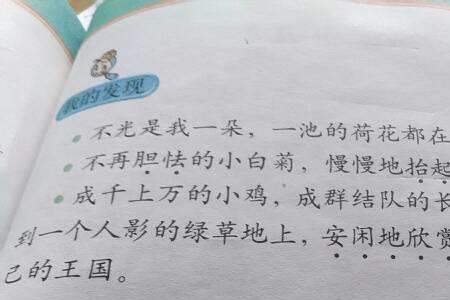 我的发现
不光是我一朵，一池的荷花都在
不再胆怯的小白菊，慢慢地抬起
成千上万的小鸡，成群结队的长
到一个人影的绿草地上，安闲地欣赏
己的王国。